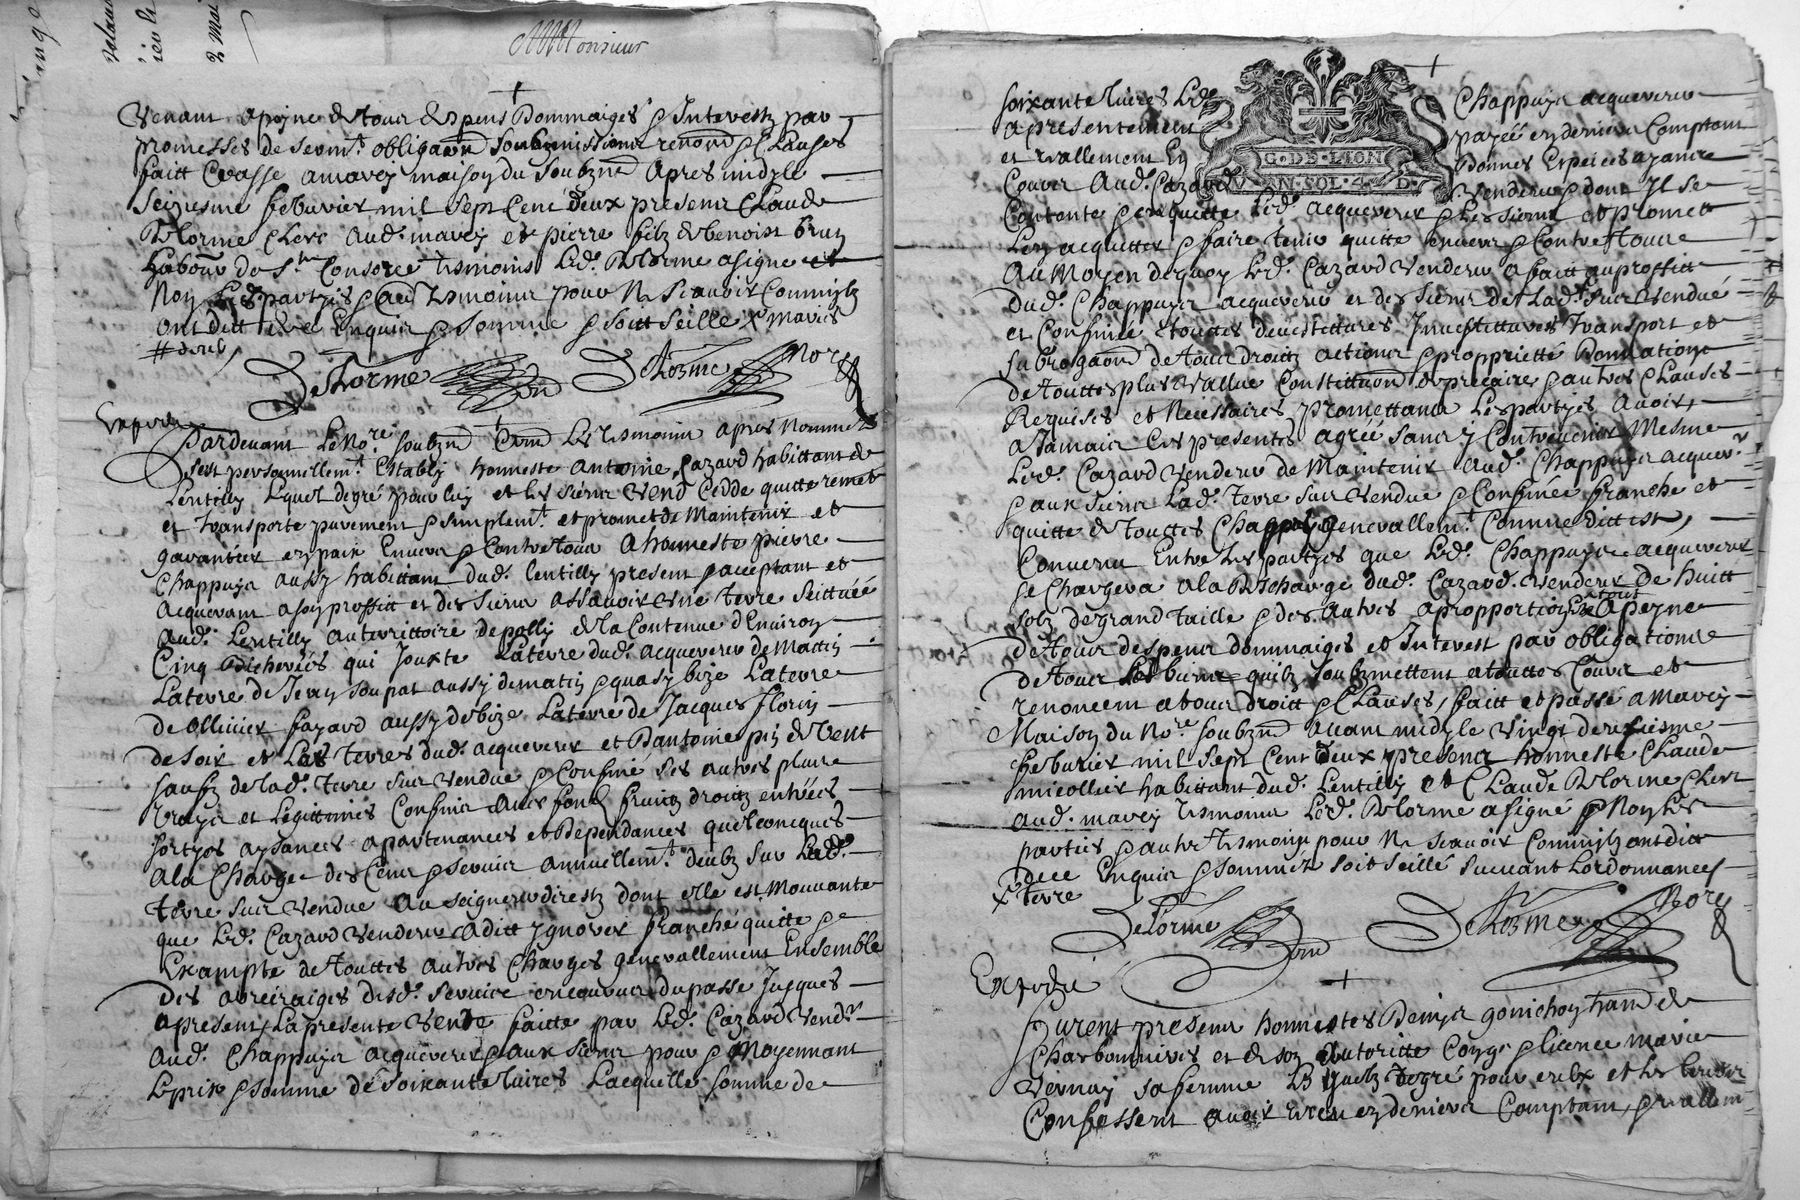 Monsieur
venant apeyne de tour despens Dommaiges & Interestz par
promesses de serm.t obligaōn soubzmissions renonō & Clauses
faitt & passe a marcy maison du soubznē Apres midy le
Seiziesme feburier mil sept Cent deux present Claude
Delorme Clerc aud. marcy et pierre filz de benoist brun
habōur de S.te Consorce tesmoins Led. Delorme a signe et
Non lesd. partyes & aū tesmoins pour Ne Scavoir Commilz
ont ditt Enquis & Sommé & soitt seelle
DeLorme DeLorme Nore
Expedie
Pardevant Le No.re soubznē & Les tesmoins apres Nommez
sest personnellem.t Estably honneste Antoine Cazard habittant de
Lentilly Lequel de gré pour luy et les siens vend cedde quitte remet
et transporte purement & simplem.t et promet de Maintenir et
garantir en paix Envers & Contre tous A honneste pierre
Chappuys aussy habittant dud. Lentilly present & aceptant et
Acquerant a son proffitt et des siens assavoir une terre Scittuée
Aud. Lentilly au territtoire de polly de la Contenue d'Environ
Cinq Bicherées qui Jouxte La terre dud. acquereur de Mattin
La terre de Jean aussy de matin & quasy bize La terre
de Ollivier fayard aussy de bize La terre de Jacques florin
de soir et Les terres dud. acquereur et D'antoine pin de vent
saufz de lad. terre sus vendue & Confiné ses autres plus
vrays et Legittimes Confins Avec fond fruitz droitz entrées
sortyes aysances apartenances et Dependances quelconcques
A la Charge des Cens & servis annuellem.t deubz sur Lad.
terre sus vendue Au seigneur direct dont elle est Mouvante
que Led. Cazard vendeur A ditt ygnorer franche quitte &
Exampte de touttes autres Charges generallement Ensemble
Des arreiraiges desd. servis encourus du passe Jusques
apresent, La presente vente faitte par Led. Cazard vend.r
Aud. Chappuys acquereur & aux siens pour & Moyennant
Le prix & somme de soixante Livres Lacquelle somme de
soixante Livres Led. Chappuys acquereur
a presentement payée en deniers Comptant
et reallement En Bonnes Especes ayants
Cours Aud. Cazard vendeur & dont Il se
G·DE·LION
MOYEN·SOL·4·D
Contente & en quitte Led. acquereur & Les siens et promet
Len acquitter & faire tenir quitte envers & Contre tous
Au Moyen de quoy Led. Cazard vendeur a faitt au proffitt
dud. Chappuys acquereur et des siens de Lad. terre sus vendue
et Confinée touttes devestittures Investittures transport et
subrogaōn de tous droitz actions & propprietté Donnation
de touttes plus vallue Constittuōn de precaire & autres Clauses
Requises et Necessaires, promettans Les partyes avoir
A Jamais Ces presentes agréé sans y Contrevenir Mesme
Led. Cazard vendeur de Maintenir Aud. Chappuys acquer.r
& aux siens Lad. terre sus vendue & Confinée franche et
quitte de touttes Charges generallem.t Comme ditt est,
Convenu Entre Les partyes que Led. Chappuys acquereur
se Chargera a la Descharge dud. Cazard vendeur de huitt
solz de grand taille & des autres a propportion Le tout Apeyne
De tous despens dommaiges et Interest par obligation
de tous Les biens quilz soubzmettent a touttes Cours et
renoncent a tous droitt & Clauses, faitt et passé a Marcy
Maison du No.re soubznē avant midy le vingt deuxiesme
feburier mil sept Cent deux present honneste Claude
micollier habittant dud. Lentilly et Claude Delorme Clerc
Aud. marcy tesmoins Led. Delorme a signé & Non Les
parties & autre tesmoing pour Ne scavoir Commilz ont ditt
de ce Enquis & sommez soit seellé suivant Lordonnance
x terre
DeLorme DeLorme Nore
Expedie
furent presens honnestes Denys gonichon hand de
Charbonnieres et de son autoritte Conge & licence marie
Vernay sa femme Les quelz de gré pour eulx et Les Leurs
Confessent avoir receu en deniers Comptant, & reallem